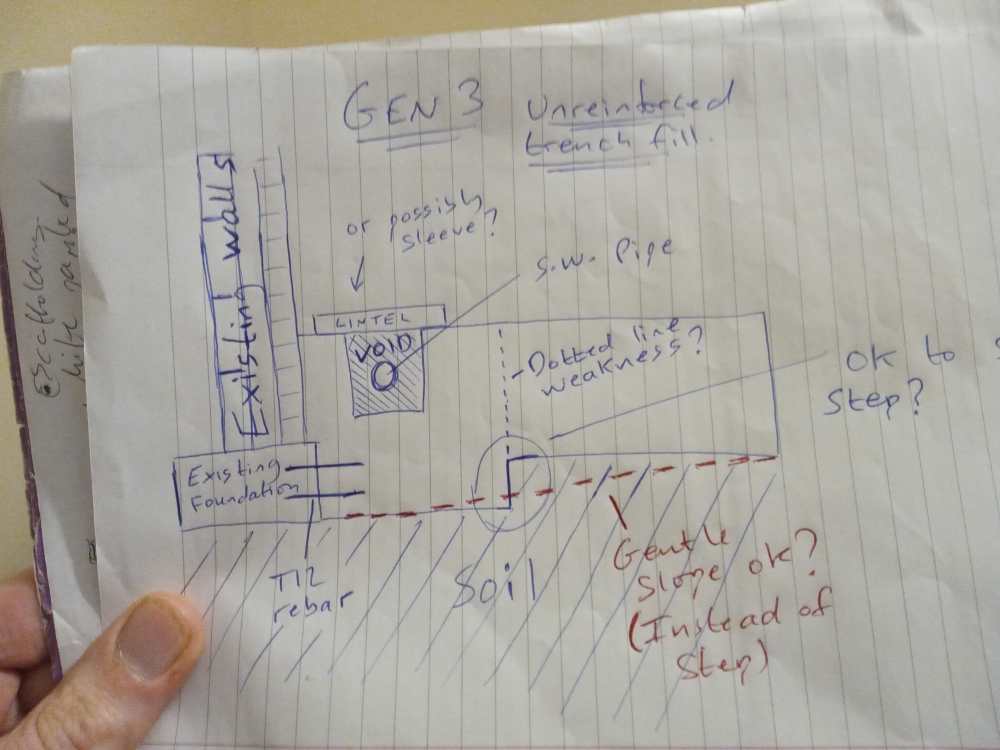 GEN 3
Unreinforced
trench fill.
Existing walls
or possibly
sleeve?
S.W. Pipe
LINTEL
VOID
Dotted line
weakness?
OK to
Step?
Existing
Foundation
T12
rebar
Soil
Gentle
Slope ok?
(Instead of
Step)
Scaffolding